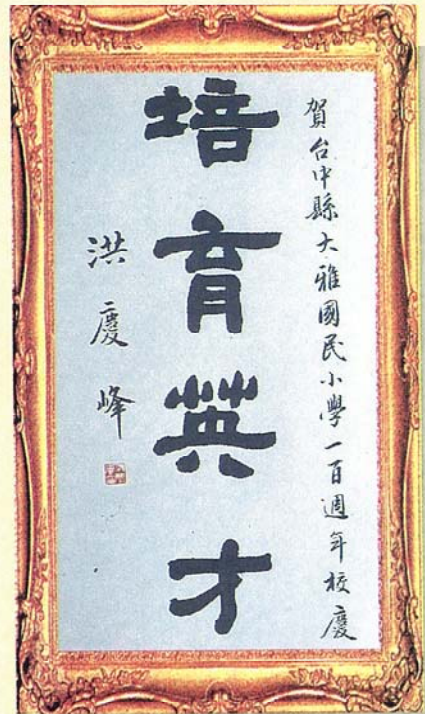 賀台中縣大雅國民小學一百週年校慶
培育英才
洪慶峰